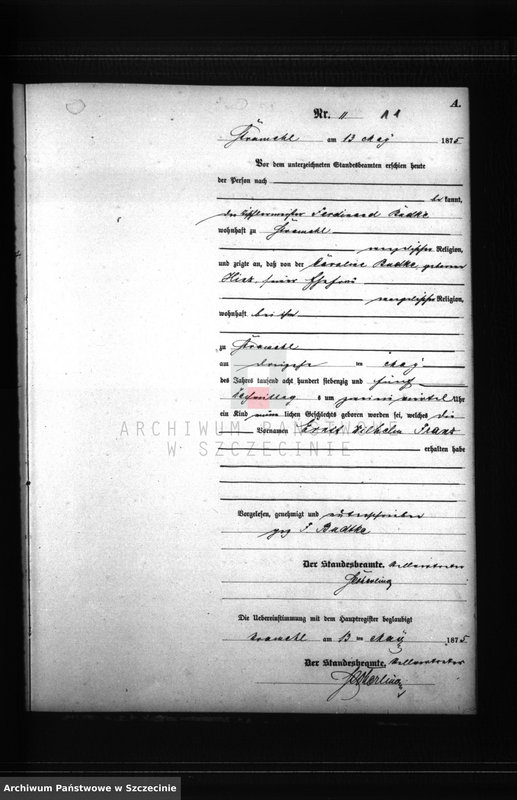 A.
Nr. 11
Stramehl am 13 May 1875
Vor dem unterzeichneten Standesbeamten erschien heute
der Person nach
be kannt,
der Tischlermeister Ferdinand Radke
wohnhaft zu Stramehl
evangelischer Religion,
und zeigte an, daß von der Caroline Radke geborene
seiner Ehefrau
evangelischer Religion,
wohnhaft bei ihm
zu Stramehl
am May
des Jahres tausend acht hundert siebenzig und fünf
Nachmittag s um Uhr
ein Kind männ lichen Geschlechts geboren worden sei, welches die
Vornamen Ernst Wilhelm Franz
erhalten habe
ARCHIWUM PAŃSTWOWE
W SZCZECINIE
Vorgelesen, genehmigt und unterschrieben
gez F Radtke
Der Standesbeamte. Stellvertreter
Die Uebereinstimmung mit dem Hauptregister beglaubigt
Stramehl am 13 ten May 1875.
Der Standesbeamte. Stellvertreter
Archiwum Państwowe w Szczecinie